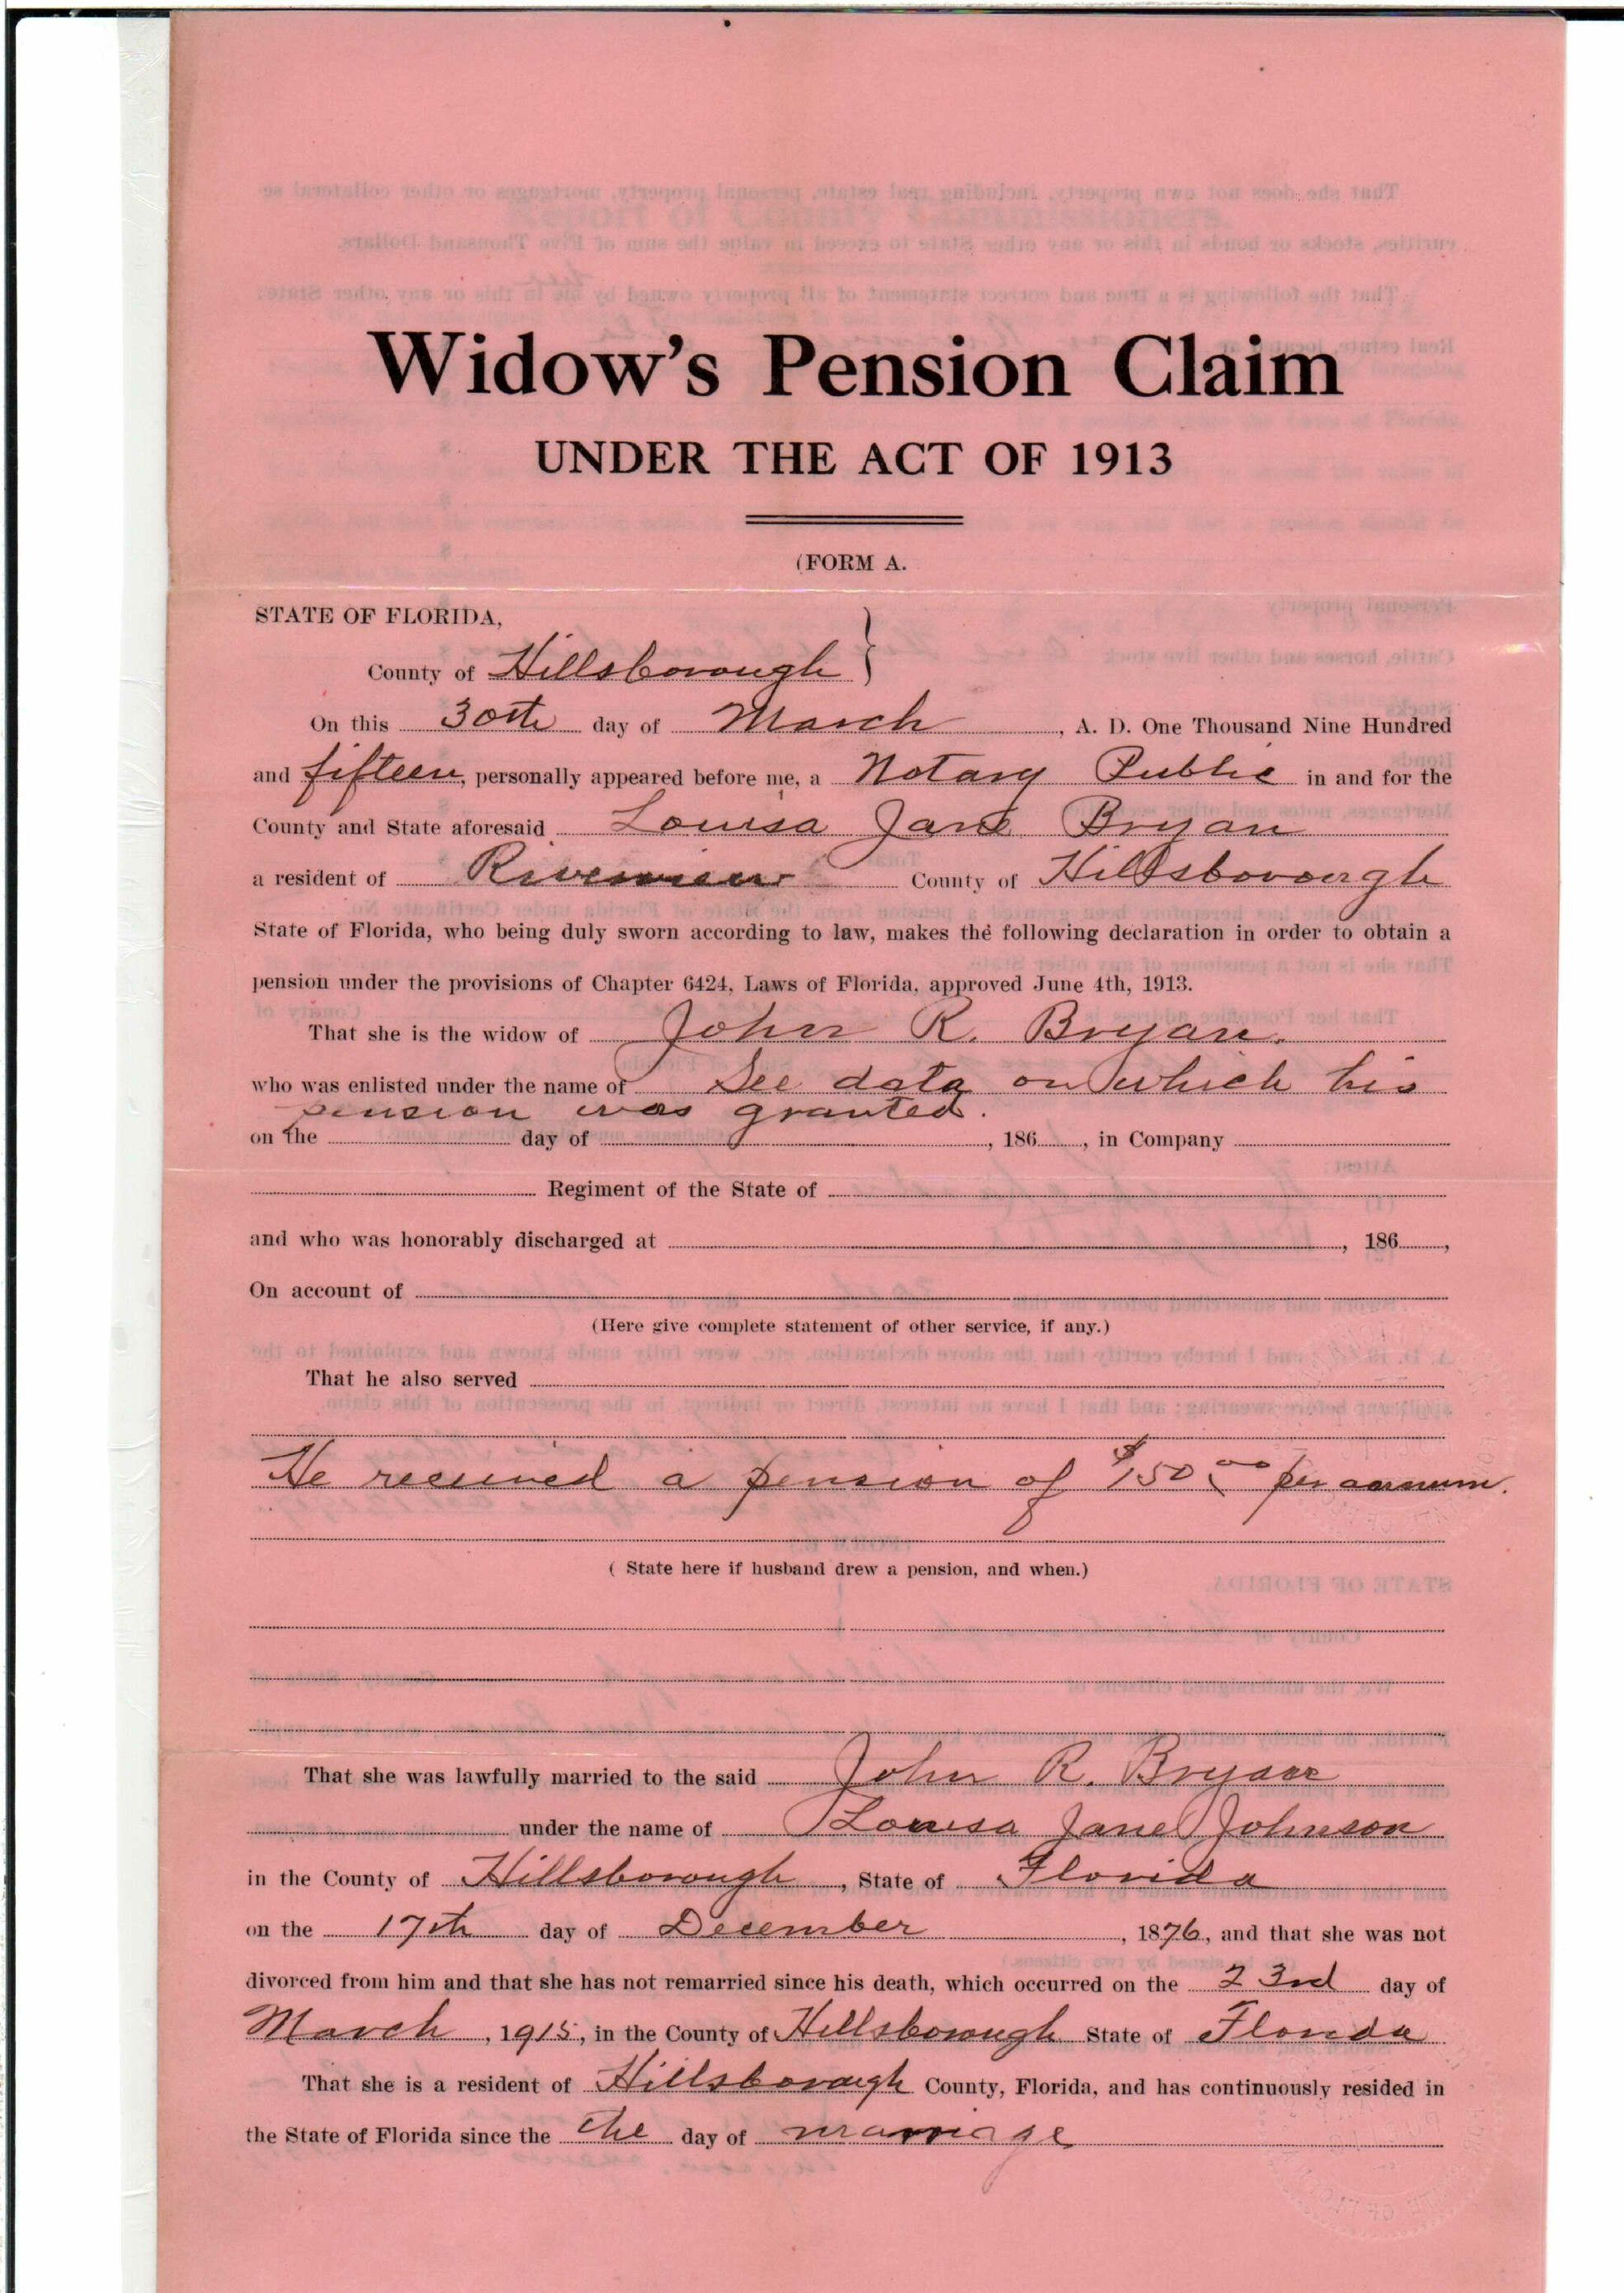 Widow's Pension Claim
UNDER THE ACT OF 1913
(FORM A.
STATE OF FLORIDA,
County of Hillsborough }
On this 30th day of March, A. D. One Thousand Nine Hundred
and fifteen, personally appeared before me, a Notary Public in and for the
County and State aforesaid Louisa Jane Bryan
a resident of Riverview County of Hillsborough
State of Florida, who being duly sworn according to law, makes the following declaration in order to obtain a
pension under the provisions of Chapter 6424, Laws of Florida, approved June 4th, 1913.
That she is the widow of John R. Bryan.
who was enlisted under the name of See data on which his
pension was granted.
on the day of , 186 , in Company
Regiment of the State of
and who was honorably discharged at , 186 ,
On account of
(Here give complete statement of other service, if any.)
That he also served
He received a pension of $150.00 per annum.
( State here if husband drew a pension, and when.)
That she was lawfully married to the said John R. Bryan
under the name of Louisa Jane Johnson
in the County of Hillsborough, State of Florida
on the 17th day of December, 1876, and that she was not
divorced from him and that she has not remarried since his death, which occurred on the 23rd day of
March, 1915, in the County of Hillsborough State of Florida
That she is a resident of Hillsborough County, Florida, and has continuously resided in
the State of Florida since the the day of marriage